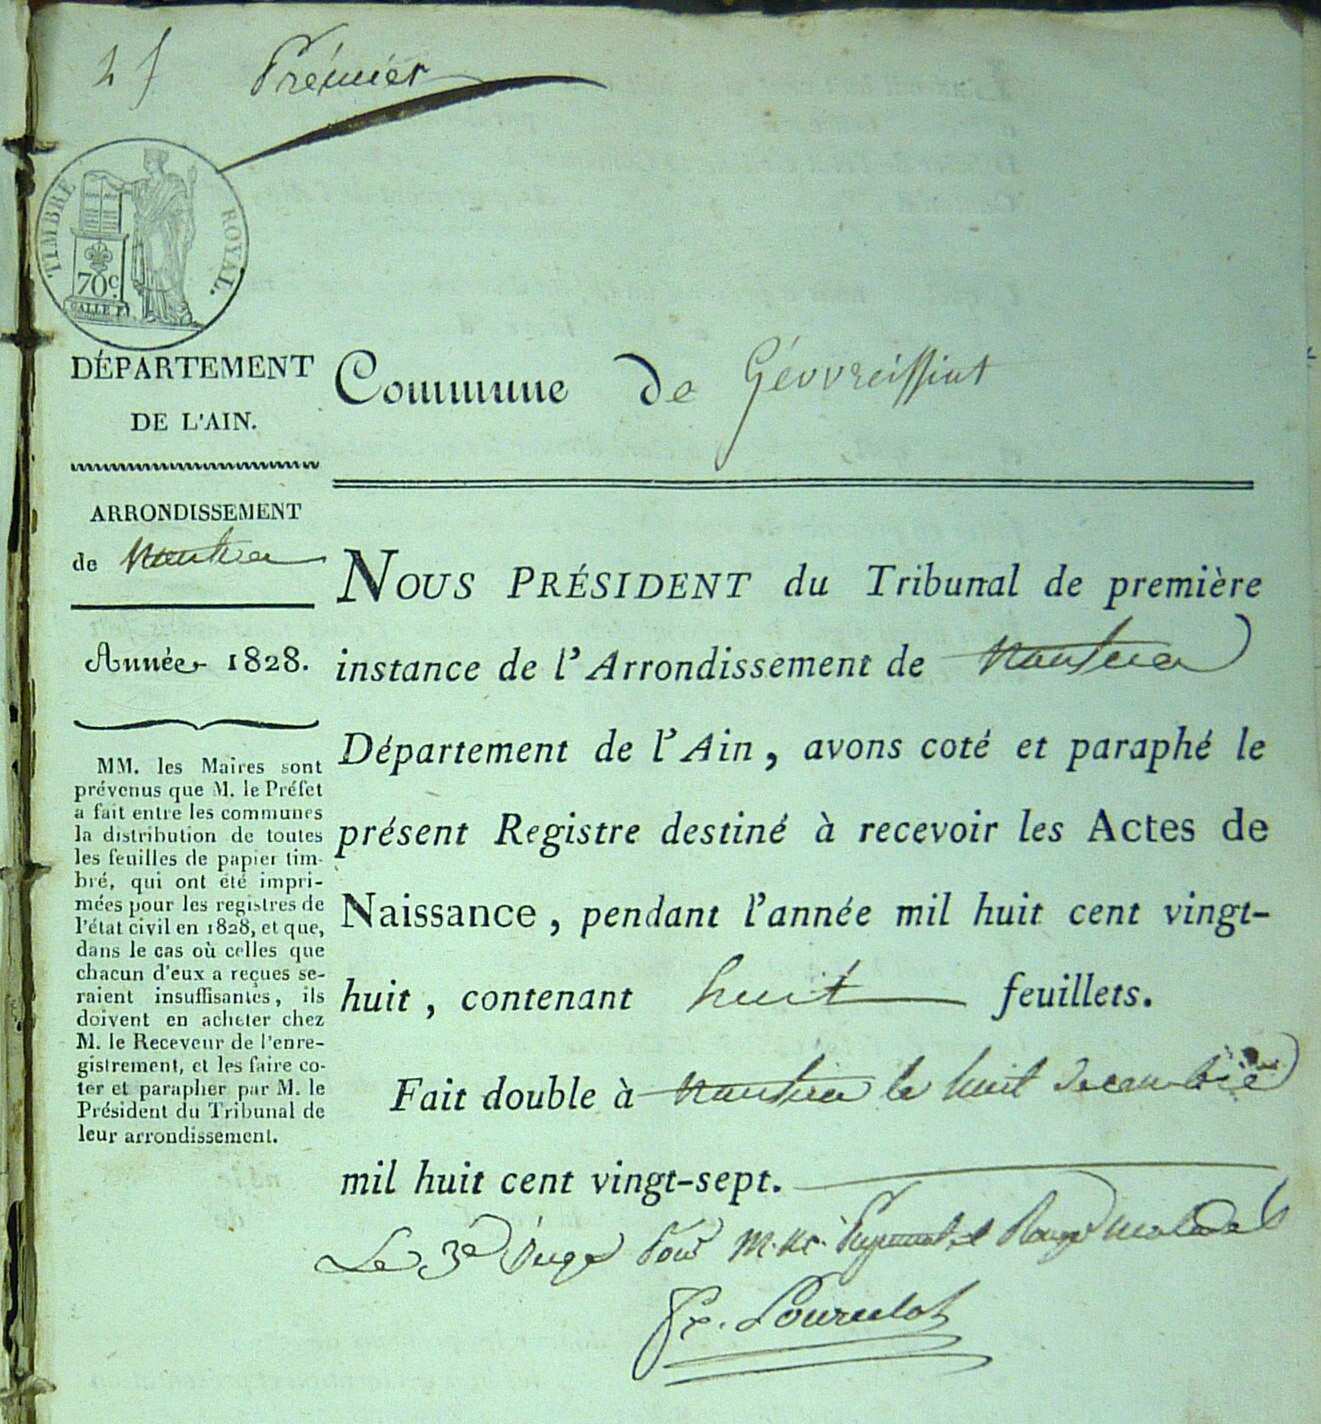 Prémier
TIMBRE ROYAL.
70c.
DÉPARTEMENT
DE L'AIN.
ARRONDISSEMENT
de Nantua
Année 1828.
MM. les Maires sont
prévenus que M. le Préfet
a fait entre les communes
la distribution de toutes
les feuilles de papier tim-
bré, qui ont été impri-
mées pour les registres de
l'état civil en 1828, et que,
dans le cas où celles que
chacun d'eux a reçues se-
raient insuffisantes, ils
doivent en acheter chez
M. le Receveur de l'enre-
gistrement, et les faire co-
ter et parapher par M. le
Président du Tribunal de
leur arrondissement.
Commune de Gévvreissiat
NOUS PRÉSIDENT du Tribunal de première
instance de l'Arrondissement de Nantua
Département de l'Ain, avons coté et paraphé le
présent Registre destiné à recevoir les Actes de
Naissance, pendant l'année mil huit cent vingt-
huit, contenant huit feuillets.
Fait double à Nantua le huit decembre
mil huit cent vingt-sept.
Le 3e Juge Pour